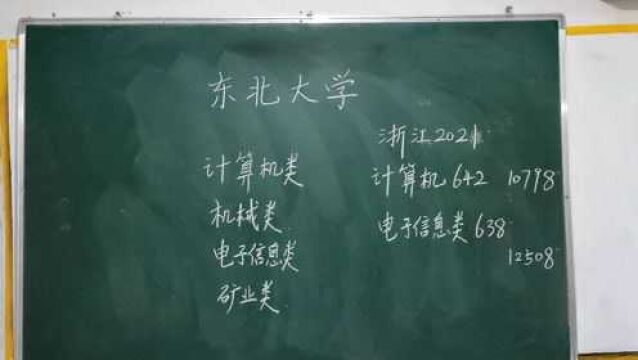 东北大学
浙江2021
计算机类
计算机642 10798
机械类
电子信息类638
电子信息类
12508
矿业类